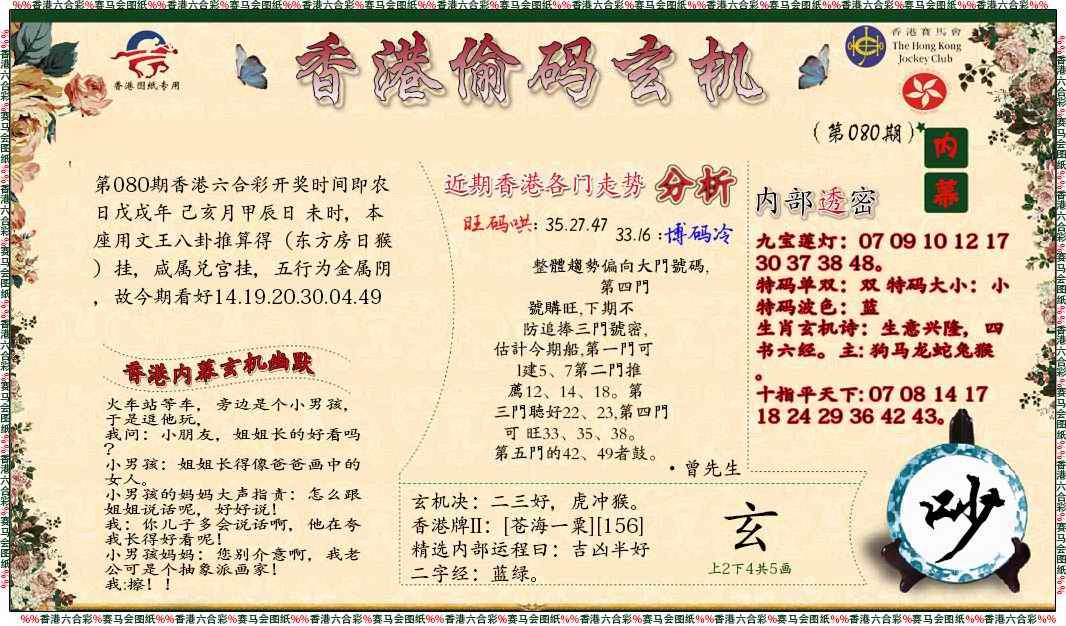 %%香港六合彩%赛马会图纸%%香港六合彩%赛马会图纸%%香港六合彩%赛马会图纸%%香港六合彩%赛马会图纸%%香港六合彩%赛马会图纸%%香港六合彩%%
香港图纸专用
香港偷码玄机
香港賽馬會
The Hong Kong
Jockey Club
(第080期)
内幕
第080期香港六合彩开奖时间即农
日戊戌年 己亥月甲辰日 未时，本
座用文王八卦推算得（东方房日猴
）挂，咸属兑宫挂，五行为金属阴
，故今期看好14.19.20.30.04.49
香港内幕玄机幽默
火车站等车，旁边是个小男孩，
于是逗他玩，
我问：小朋友，姐姐长的好看吗
？
小男孩：姐姐长得像爸爸画中的
女人。
小男孩的妈妈大声指责：怎么跟
姐姐说话呢，好好说！
我：你儿子多会说话啊，他在夸
我长得好看呢！
小男孩妈妈：您别介意啊，我老
公可是个抽象派画家！
我:擦！！
近期香港各门走势 分析
旺码哄: 35.27.47
33.16 :博码冷
整體趨勢偏向大門號碼,
第四門
號購旺,下期不
防追捧三門號密,
估計今期船,第一門可
1建5、7第二門推
薦12、14、18。第
三門聽好22、23,第四門
可 旺33、35、38。
第五門的42、49者鼓。
·曾先生
玄机决：二三好，虎冲猴。
香港牌II：[苍海一粟][156]
精选内部运程曰：吉凶半好
二字经：蓝绿。
玄
上2下4共5画
内部透密
九宝莲灯：07 09 10 12 17
30 37 38 48。
特码单双：双 特码大小：小
特码波色：蓝
生肖玄机诗：生意兴隆，四
书六经。主: 狗马龙蛇兔猴
。
十指平天下: 07 08 14 17
18 24 29 36 42 43。
吵
%%香港六合彩%赛马会图纸%%香港六合彩%赛马会图纸%%香港六合彩%赛马会图纸%%香港六合彩%赛马会图纸%%香港六合彩%赛马会图纸%%香港六合彩%%